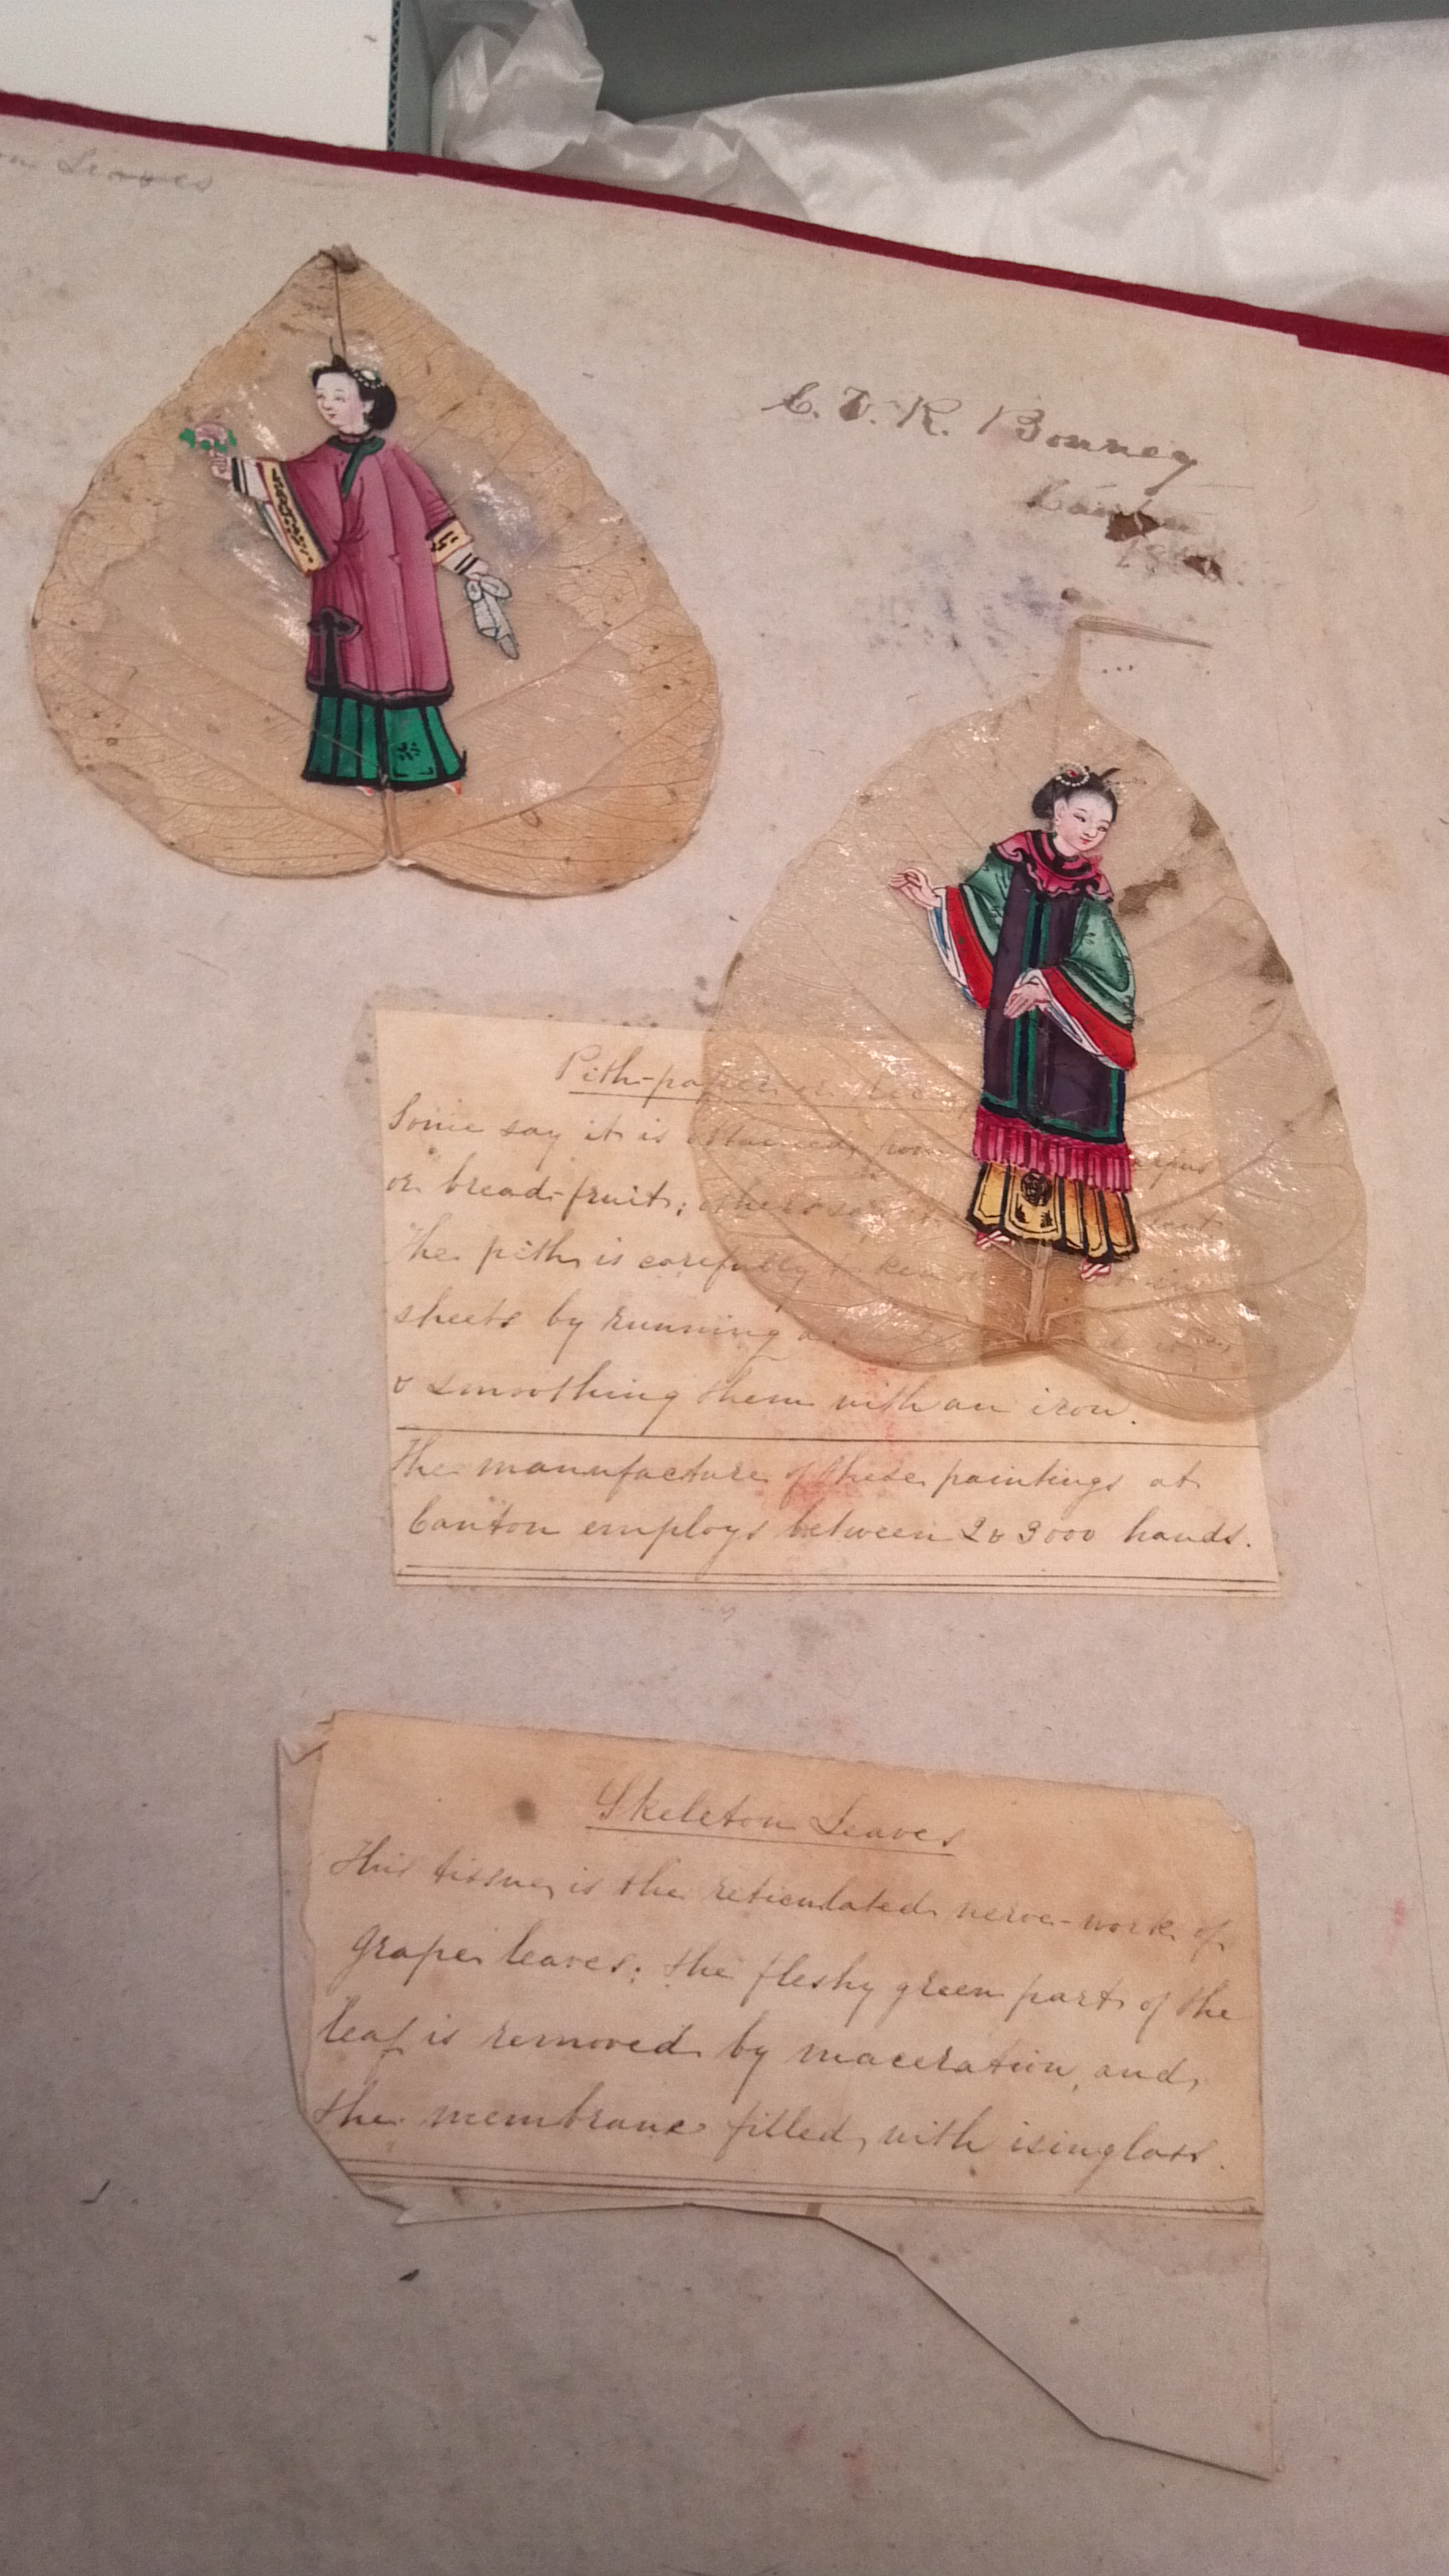 Leaves
C. V. R. Bonney
Canton
Pith-paper
Some say it is obtained from
or bread-fruit; others say it
The pith is carefully taken
sheets by running a
& smoothing them with an iron.
The manufacture of these paintings at
Canton employs between 2 & 3000 hands.
Skeleton Leaves
This tissue is the reticulated nerve-work of
grape leaves; the fleshy green part of the
leaf is removed by maceration, and
the membrane filled with isinglass.